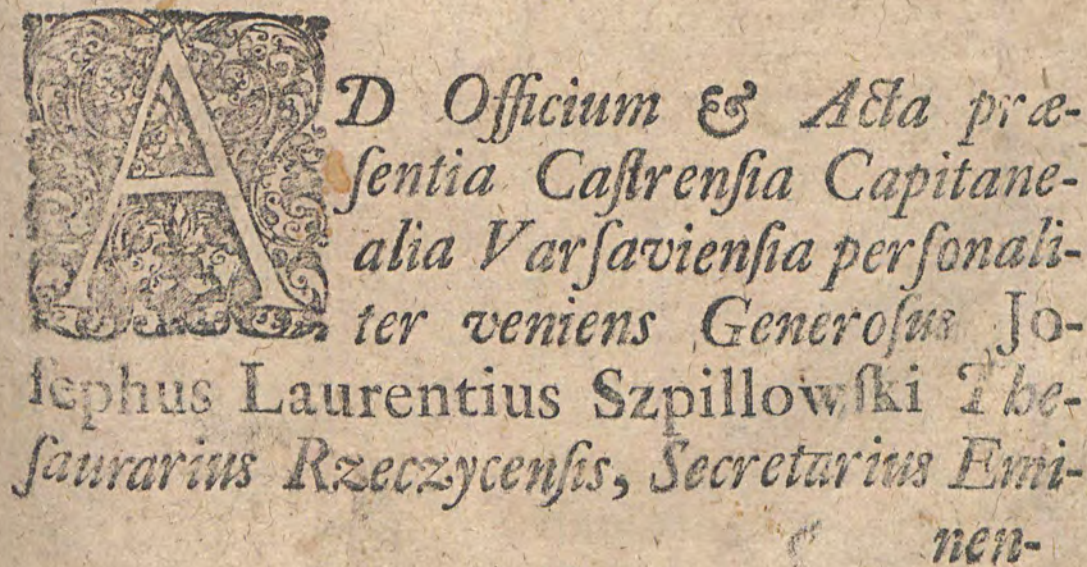 AD Officium & Acta præ-
ſentia Caſtrenſia Capitane-
alia Varſavienſia perſonali-
ter veniens Generoſus Jo-
ſephus Laurentius Szpillowſki The-
ſaurarius Rzeczycenſis, Secretarius Emi-
nen-